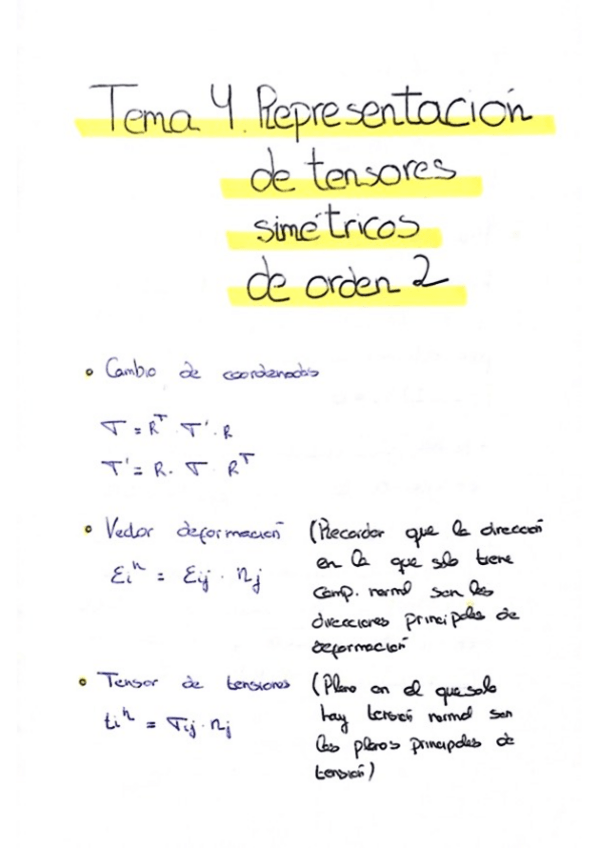 Tema 4. Representación
de tensores
simétricos
de orden 2
• Cambio de coordenadas
T = R^T · T' · R
T' = R · T · R^T
• Vector deformación (Recordar que la dirección
en la que solo tiene
comp. normal son las
direcciones principales de
deformación
εi^n = εij · nj
• Tensor de tensiones (Plano en el que solo
hay tensión normal son
los planos principales de
tensión)
ti^n = Tij · nj